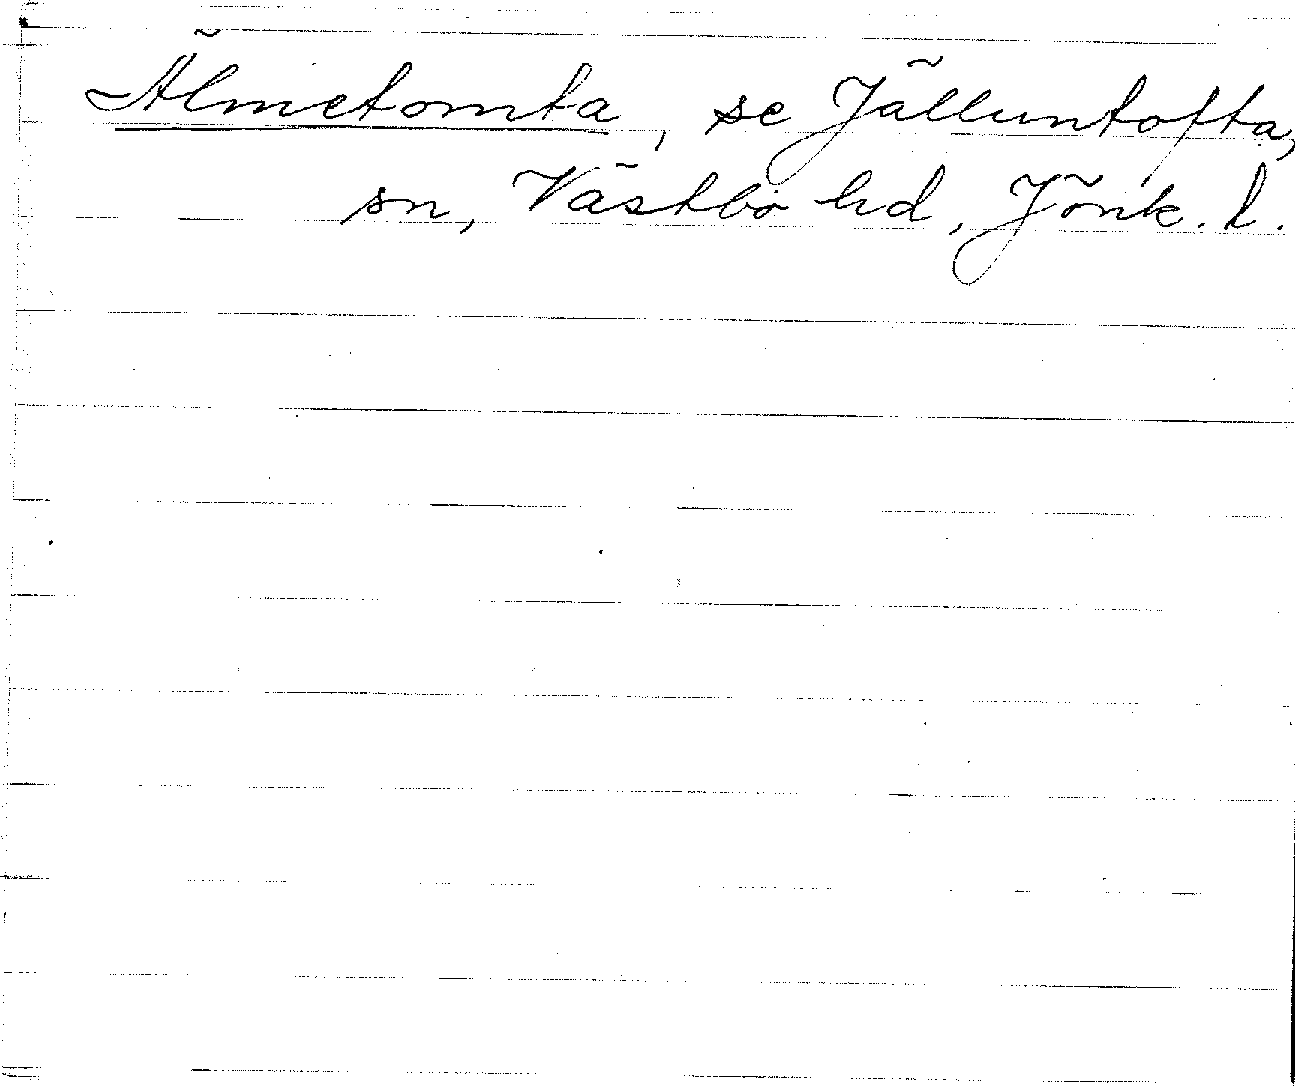 Älmetomta, se Jälluntofta,
sn, Västbo hd, Jönk. l.